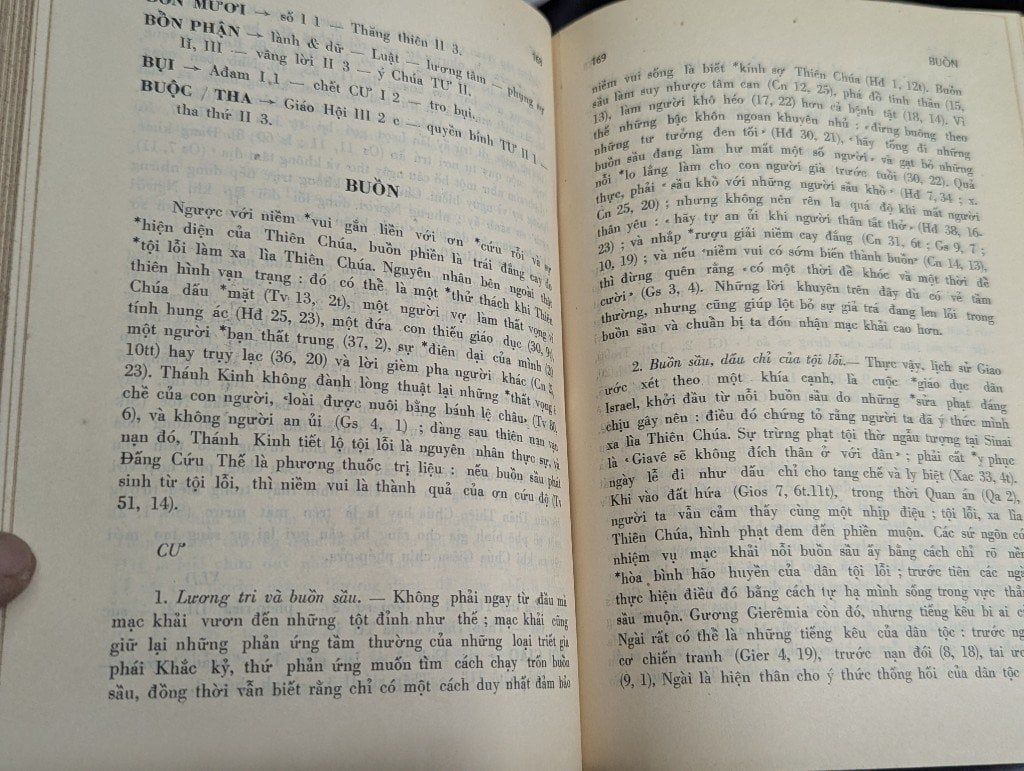 BỔN MƯƠI → số I 1 — Thăng thiên II 3.
168
BỒN PHẬN → lành & dữ — Luật — lương tâm — phụng sự
II, III — vâng lời II 3 — ý Chúa TƯ II.
BỤI → Ađam I,1 — chết CƯ I 2 — tro bụi.
BUỘC / THA → Giáo Hội III 2 c — quyền bính TƯ II 1 —
tha thứ II 3.
BUỒN
Ngược với niềm *vui gắn liền với ơn *cứu rỗi và sự
*hiện diện của Thiên Chúa, buồn phiền là trái đắng cay do
*tội lỗi làm xa lìa Thiên Chúa. Nguyên nhân bên ngoài thật
thiên hình vạn trạng : đó có thể là một *thử thách khi Thiên
Chúa dấu *mặt (Tv 13, 2t), một người vợ làm thất vọng vì
tính hung ác (Hđ 25, 23), một đứa con thiếu giáo dục (30, 9t)
một người *bạn thất trung (37, 2), sự *điên dại của mình (22,
10tt) hay trụy lạc (36, 20) và lời gièm pha người khác (Cn 25,
23). Thánh Kinh không đành lòng thuật lại những *thất vọng ê
chề của con người, ‹loài được nuôi bằng bánh lệ châu› (Tv 80,
6), và không người an ủi (Gs 4, 1) ; dàng sau thiên nan vạn
nạn đó, Thánh Kinh tiết lộ tội lỗi là nguyên nhân thực sự, và
Đấng Cứu Thế là phương thuốc trị liệu : nếu buồn sầu phát
sinh từ tội lỗi, thì niềm vui là thành quả của ơn cứu độ (Tv
51, 14).
CƯ
1. Lương tri và buồn sầu. — Không phải ngay từ đầu mà
mạc khải vươn đến những tột đỉnh như thế ; mạc khải cũng
giữ lại những phản ứng tầm thường của những loại triết gia
phái Khắc kỷ, thứ phản ứng muốn tìm cách chạy trốn buồn
sầu, đồng thời vẫn biết rằng chỉ có một cách duy nhất đảm bảo
169 BUỒN
niềm vui sống là biết *kính sợ Thiên Chúa (Hđ 1, 12t). Buồn
sầu làm suy nhược tâm can (Cn 12, 25), phá đổ tinh thần (15,
13), làm người khô héo (17, 22) hơn cả bệnh tật (18, 14). Vì
thế những bậc khôn ngoan khuyên nhủ : ‹đừng buông theo
những tư tưởng đen tối› (Hđ 30, 21), ‹hãy tống đi những
buồn sầu đang làm hư mất một số người› và gạt bỏ những
nỗi *lo lắng làm cho con người già trước tuổi (30, 22). Quả
thực, phải ‹sầu khổ với những người sầu khổ› (Hđ 7, 34 ; x.
Cn 25, 20) ; nhưng không nên rên la quá độ khi mất người
thân yêu : ‹hãy tự an ủi khi người thân tắt thở› (Hđ 38, 16-
23) ; và nhấp *rượu giải niềm cay đắng (Cn 31, 6t ; Gs 9, 7 ;
10, 19) ; và nếu ‹niềm vui có sớm biến thành buồn› (Cn 14, 13),
thì đừng quên rằng ‹có một thời để khóc và một thời để
cười› (Gs 3, 4). Những lời khuyên trên đây dù có vẻ tầm
thường, nhưng cũng giúp lột bỏ sự giả trá đang len lỏi trong
buồn sầu và chuẩn bị ta đón nhận mạc khải cao hơn.
2. Buồn sầu, dấu chỉ của tội lỗi. — Thực vậy, lịch sử Giao
ước xét theo một khía cạnh, là cuộc *giáo dục dân
Israel, khởi đầu từ nỗi buồn sầu do những *sửa phạt đáng
chịu gây nên : điều đó chứng tỏ rằng người ta đã ý thức mình
xa lìa Thiên Chúa. Sự trừng phạt tội thờ ngẫu tượng tại Sinai
là ‹Giavê sẽ không đích thân ở với dân› ; phải cất *y phục
ngày lễ đi như dấu chỉ cho tang chế và ly biệt (Xac 33, 4t).
Khi vào đất hứa (Gios 7, 6t.11t), trong thời Quan án (Qa 2),
người ta vẫn cảm thấy cùng một nhịp điệu ; tội lỗi, xa lìa
Thiên Chúa, hình phạt đem đến phiền muộn. Các sứ ngôn có
nhiệm vụ mạc khải nỗi buồn sầu ấy bằng cách chỉ rõ nền
*hòa bình hão huyền của dân tội lỗi ; trước tiên các ngài
thực hiện điều đó bằng cách tự hạ mình sống trong vực thẳm
sầu muộn. Gương Gierêmia còn đó, nhưng tiếng kêu bi ai của
Ngài rất có thể là những tiếng kêu của dân tộc : trước nguy
cơ chiến tranh (Gier 4, 19), trước nạn đói (8, 18), tai ương
(9, 1), Ngài là hiện thân cho ý thức thống hối của dân tộc